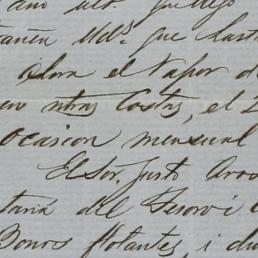 año ult.
Uds. que hasta
ahora el Vapor de
en ntras Costas, el 2
ocasion mensual
El Sor. Justo Aros
taria del Tesoro i
Bonos flotantes, i du